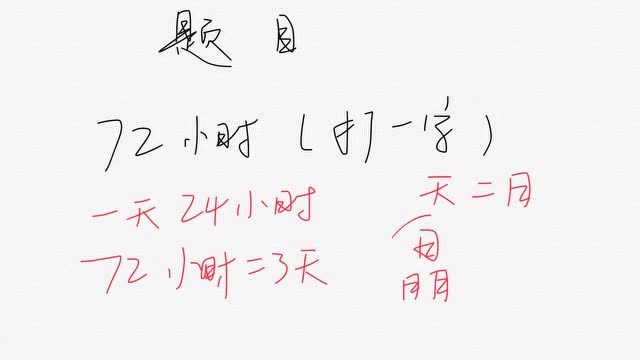 题目
72小时（打一字）
一天24小时
72小时=3天
天=日
日
日日